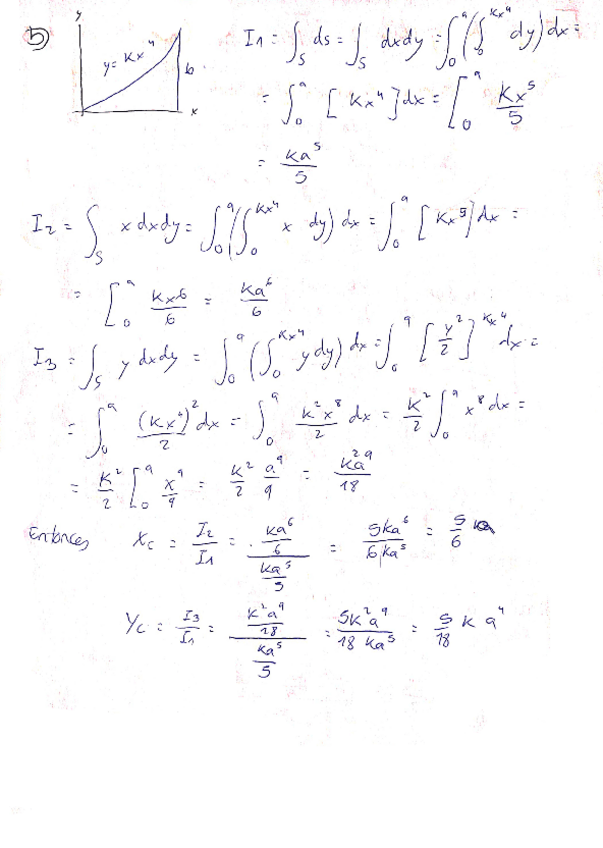 5) y y = Kx^4 b x
I1 = ∫_S ds = ∫_S dxdy = ∫_0^a (∫_0^{Kx^4} dy) dx =
= ∫_0^a [Kx^4] dx = [_0^a Kx^5/5
= Ka^5/5
I2 = ∫_S x dxdy = ∫_0^a (∫_0^{Kx^4} x dy) dx = ∫_0^a [Kx^5] dx =
= [_0^a Kx^6/6 = Ka^6/6
I3 = ∫_S y dxdy = ∫_0^a (∫_0^{Kx^4} y dy) dx = ∫_0^a [y^2/2]^{Kx^4} dx =
= ∫_0^a (Kx^4)^2/2 dx = ∫_0^a K^2x^8/2 dx = K^2/2 ∫_0^a x^8 dx =
= K^2/2 [_0^a x^9/9 = K^2/2 a^9/9 = K^2a^9/18
Entonces Xc = I2/I1 = (Ka^6/6)/(Ka^5/5) = 5Ka^6/6Ka^5 = 5/6 a
Yc = I3/I1 = (K^2a^9/18)/(Ka^5/5) = 5K^2a^9/18Ka^5 = 5/18 K a^4